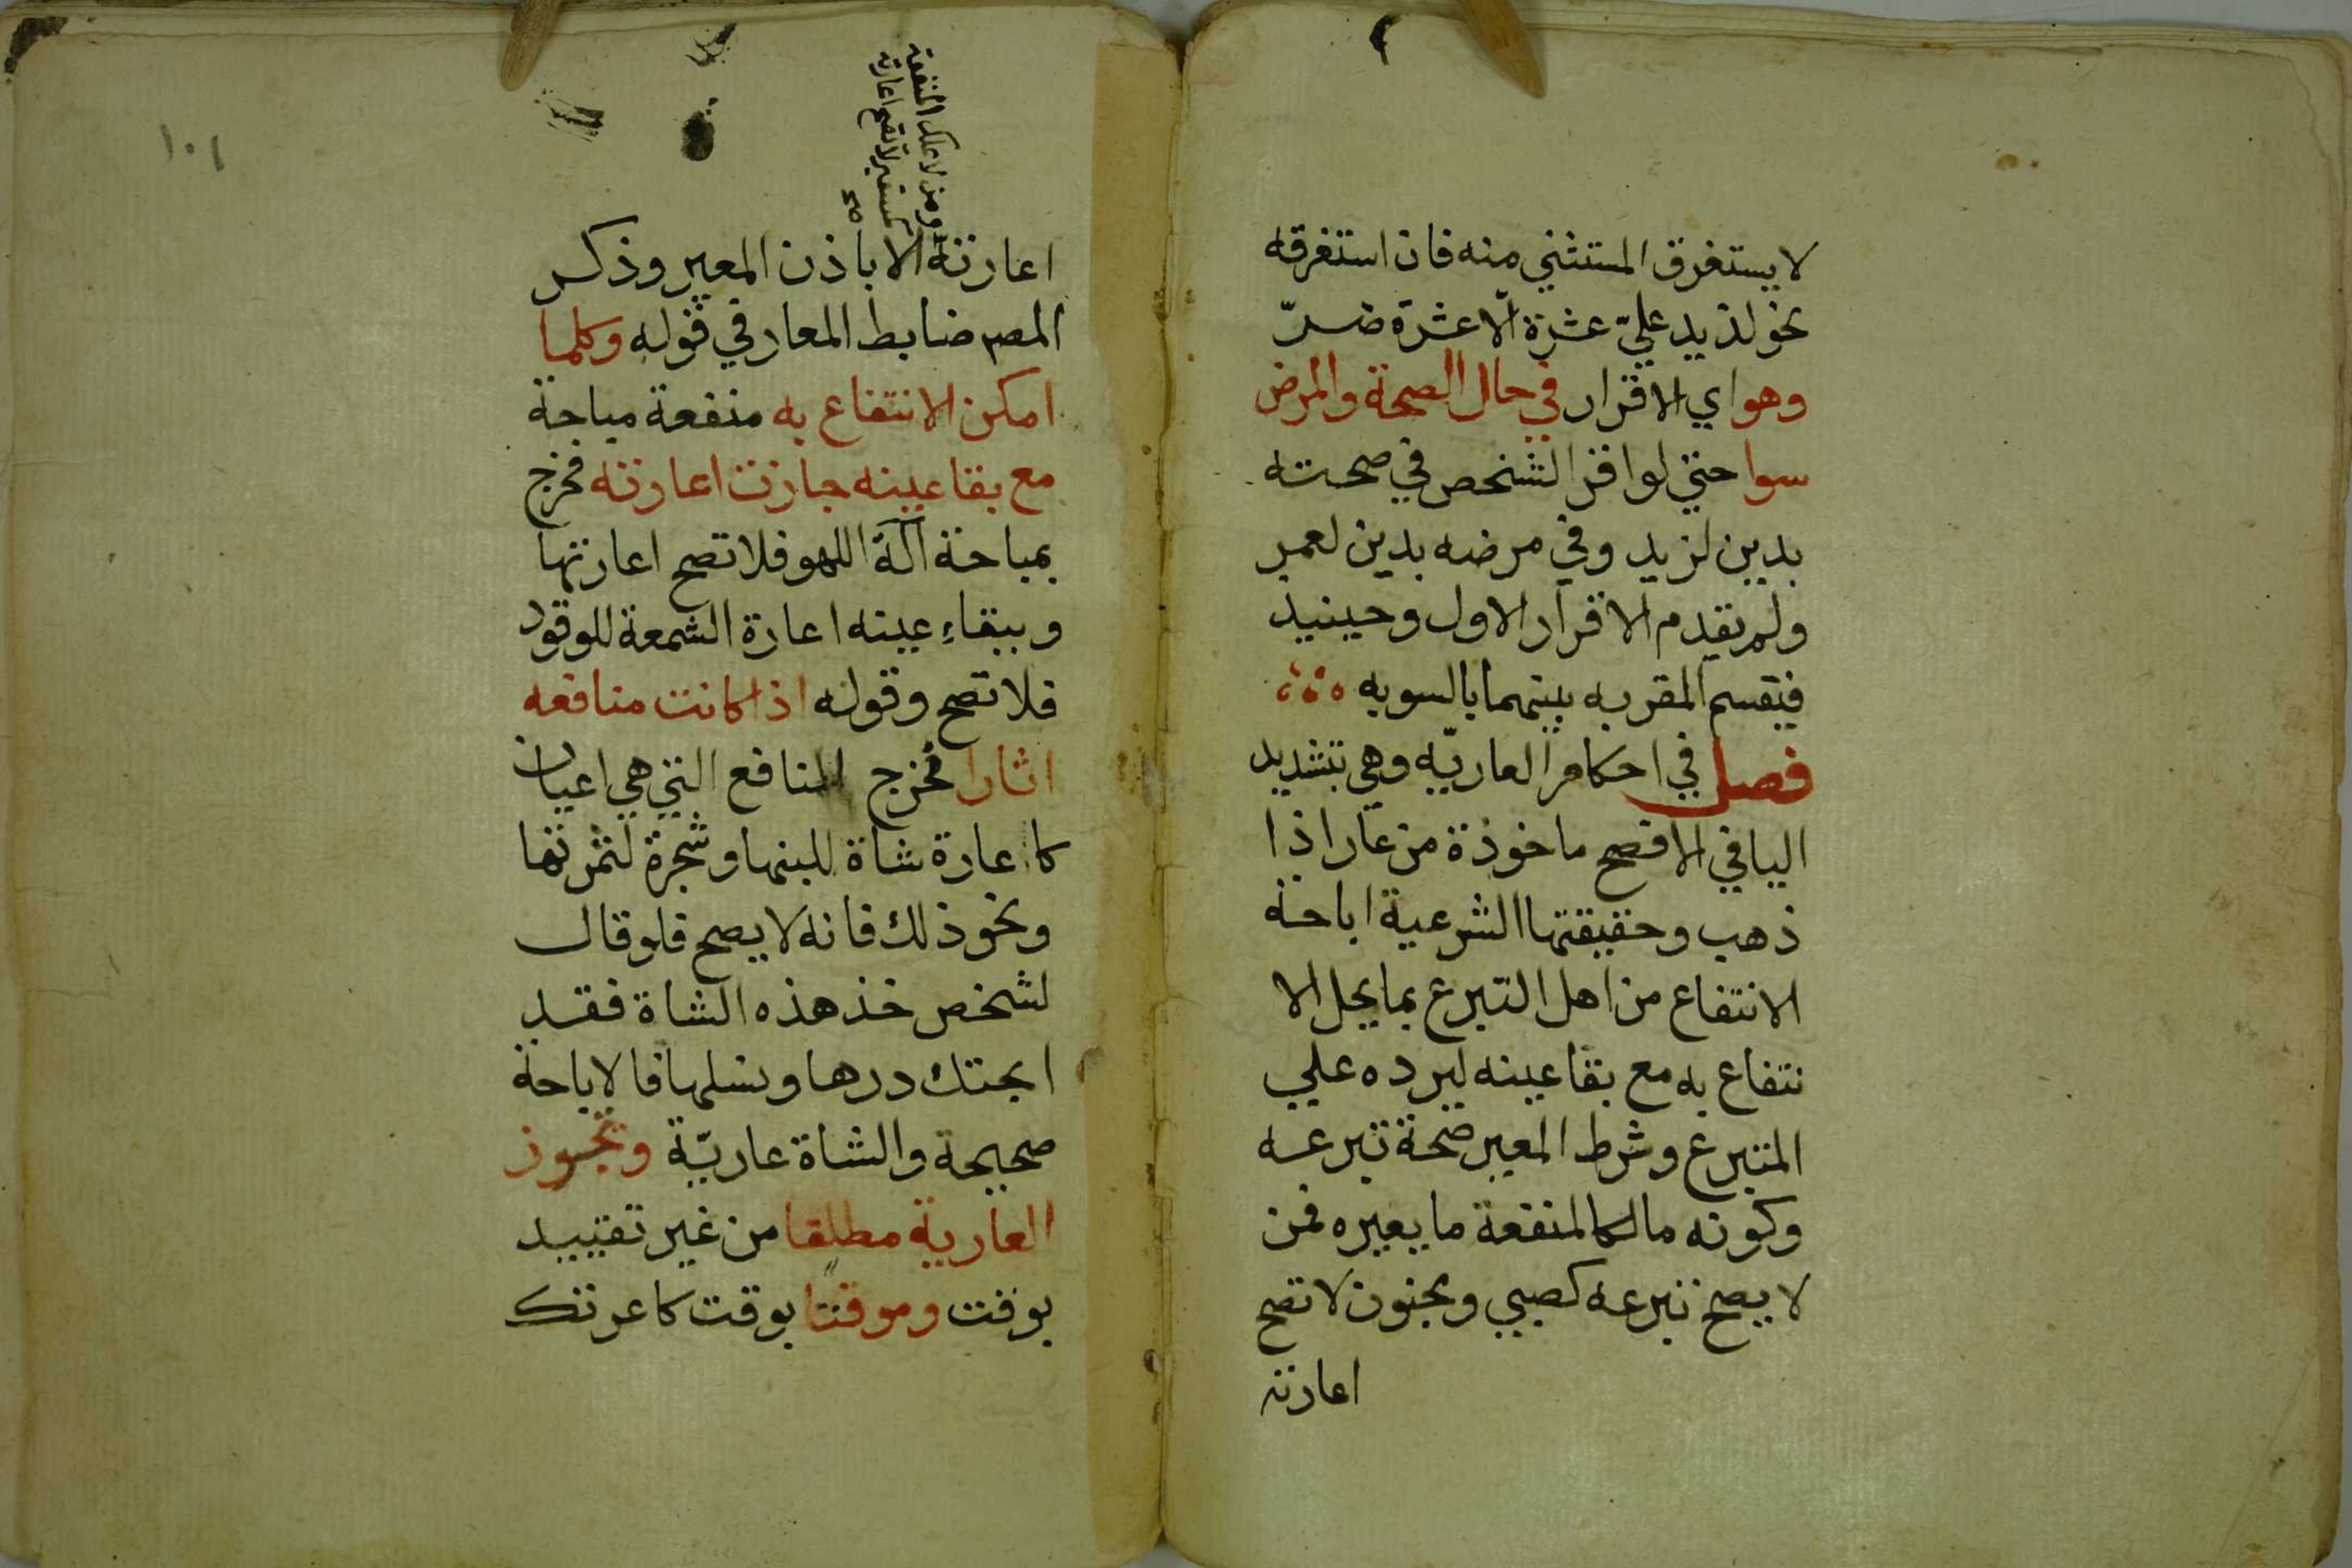 لا يستغرق المستثني منه فان استغرقه
نحو لزيد عليّ عشرة الّا عشرة ضرّ
وهو اي الاقرار في حال الصحة والمرض
سوا حتي لو اقر الشخص في صحته
بدين لزيد وفي مرضه بدين لعمر
ولم يقدم الاقرار الاول وحينيذ
فيقسم المقر به بينهما بالسويه
فصل في احكام العاريّه وهي بتشديد
اليا في الافصح ماخوذة من عار اذا
ذهب وحقيقتها الشرعية اباحة
الانتفاع من اهل التبرع بما يحل الا
نتفاع به مع بقا عينه ليرده علي
المتبرع وشرط المعير صحة تبرعه
وكونه مالكا لمنفعة ما يعيره فمن
لا يصح تبرعه كصبي ومجنون لا تصح
اعارته
١٠١
ومن لا يملك المنفعة
كمستعير لا تصح اعارته
صح
اعارته الا باذن المعير وذكر
المصر ضابط المعار في قوله وكلما
امكن الانتفاع به منفعة مباحة
مع بقا عينه جازت اعارته فخرج
بمباحة آلة اللهو فلا تصح اعارتها
وببقاء عينه اعارة الشمعة للوقود
فلا تصح وقوله اذا كانت منافعه
اثارا فخرج المنافع التي هي اعيان
كاعارة شاة للبنها وشجرة لثمرتها
ونحو ذلك فانه لا يصح فلو قال
لشخص خذ هذه الشاة فقد
ابحتك درها ونسلها فالاباحة
صحيحة والشاة عاريّة وتجوز
العارية مطلقا من غير تقييد
بوقت وموقتا بوقت كاعرتك